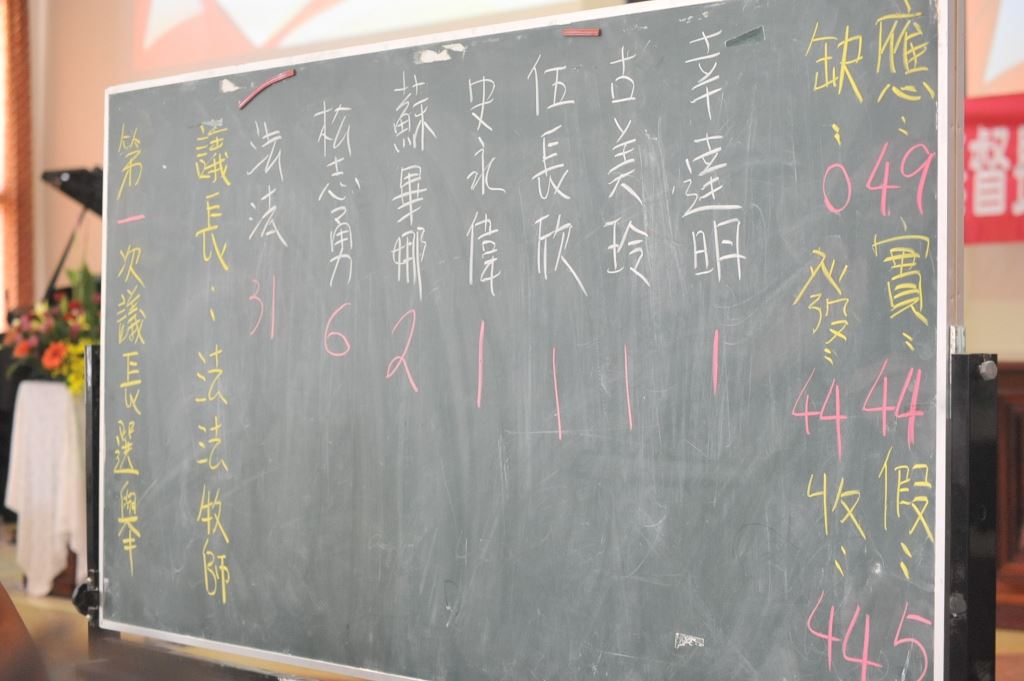 應：49 實：44 假：5
缺：0 發：44 收：44
辛達明 1
古美玲 1
伍長欣 1
史永偉 1
蘇畢娜 2
松志勇 6
法法 31
議長：法法牧師
第一次議長選舉
督